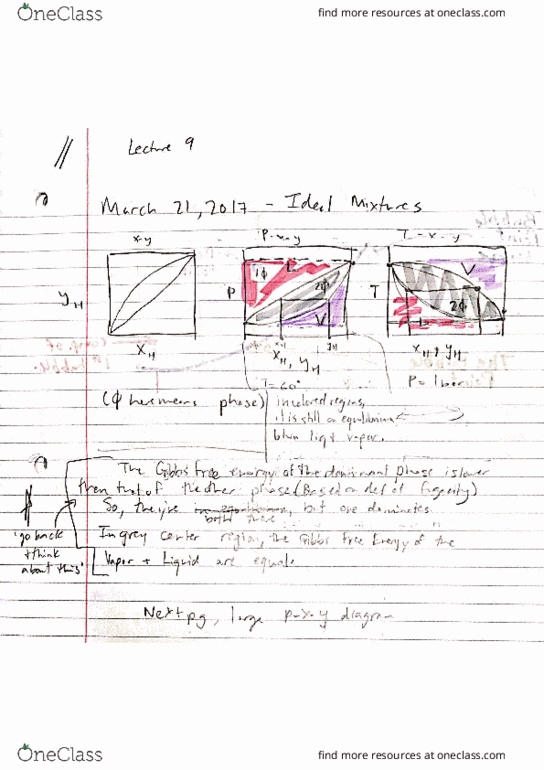 OneClass
find more resources at oneclass.com
Lecture 9
March 21, 2017 - Ideal Mixtures
x-y
P-x-y
T-x-y
yH
xH
P
1ϕ
L
2ϕ
V
xH, yH
T
V
2ϕ
L
xH, yH
T = 60°
P = 1 bar
(ϕ here means phase)
in colored regions,
it is still an equilibrium
btwn liq + vapor.
The Gibbs free energy of the dominant phase is lower
then that of the other phase (Based on def of fugacity)
So, they're both there, but one dominates.
In grey center region, the Gibbs Free Energy of the
Vapor + Liquid are equal.
'go back
+ think
about this'
Next pg, large p-x-y diagram
OneClass
find more resources at oneclass.com